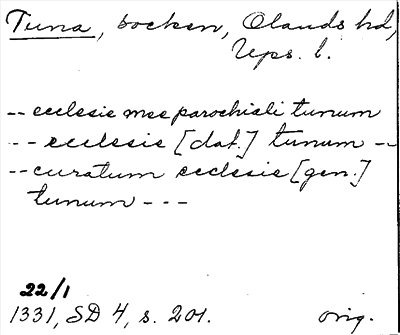 Tuna, socken, Olands hd,
Ups. l.
-- ecclesie mee parochiali tunum
-- ecclesie [dat.] tunum --
-- curatum ecclesie [gen.]
tunum ---
22/1
1331, SD 4, s. 201. orig.